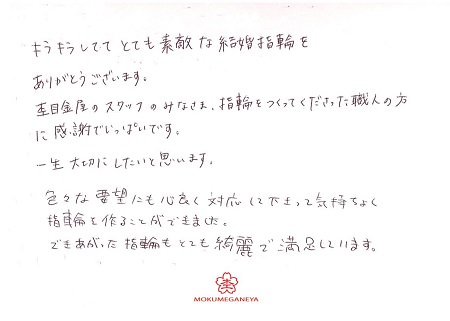 キラキラしてて とても 素敵 な 結婚指輪を
ありがとうございます。
杢目金屋のスタッフのみなさま、指輪をつくってくださった職人の方
に感謝でいっぱいです。
一生 大切に したいと思います。
色々な要望にも心良く対応して下さって気持ちよく
指輪を作ることができました。
できあがった指輪もとても綺麗で満足しています。
MOKUMEGANEYA